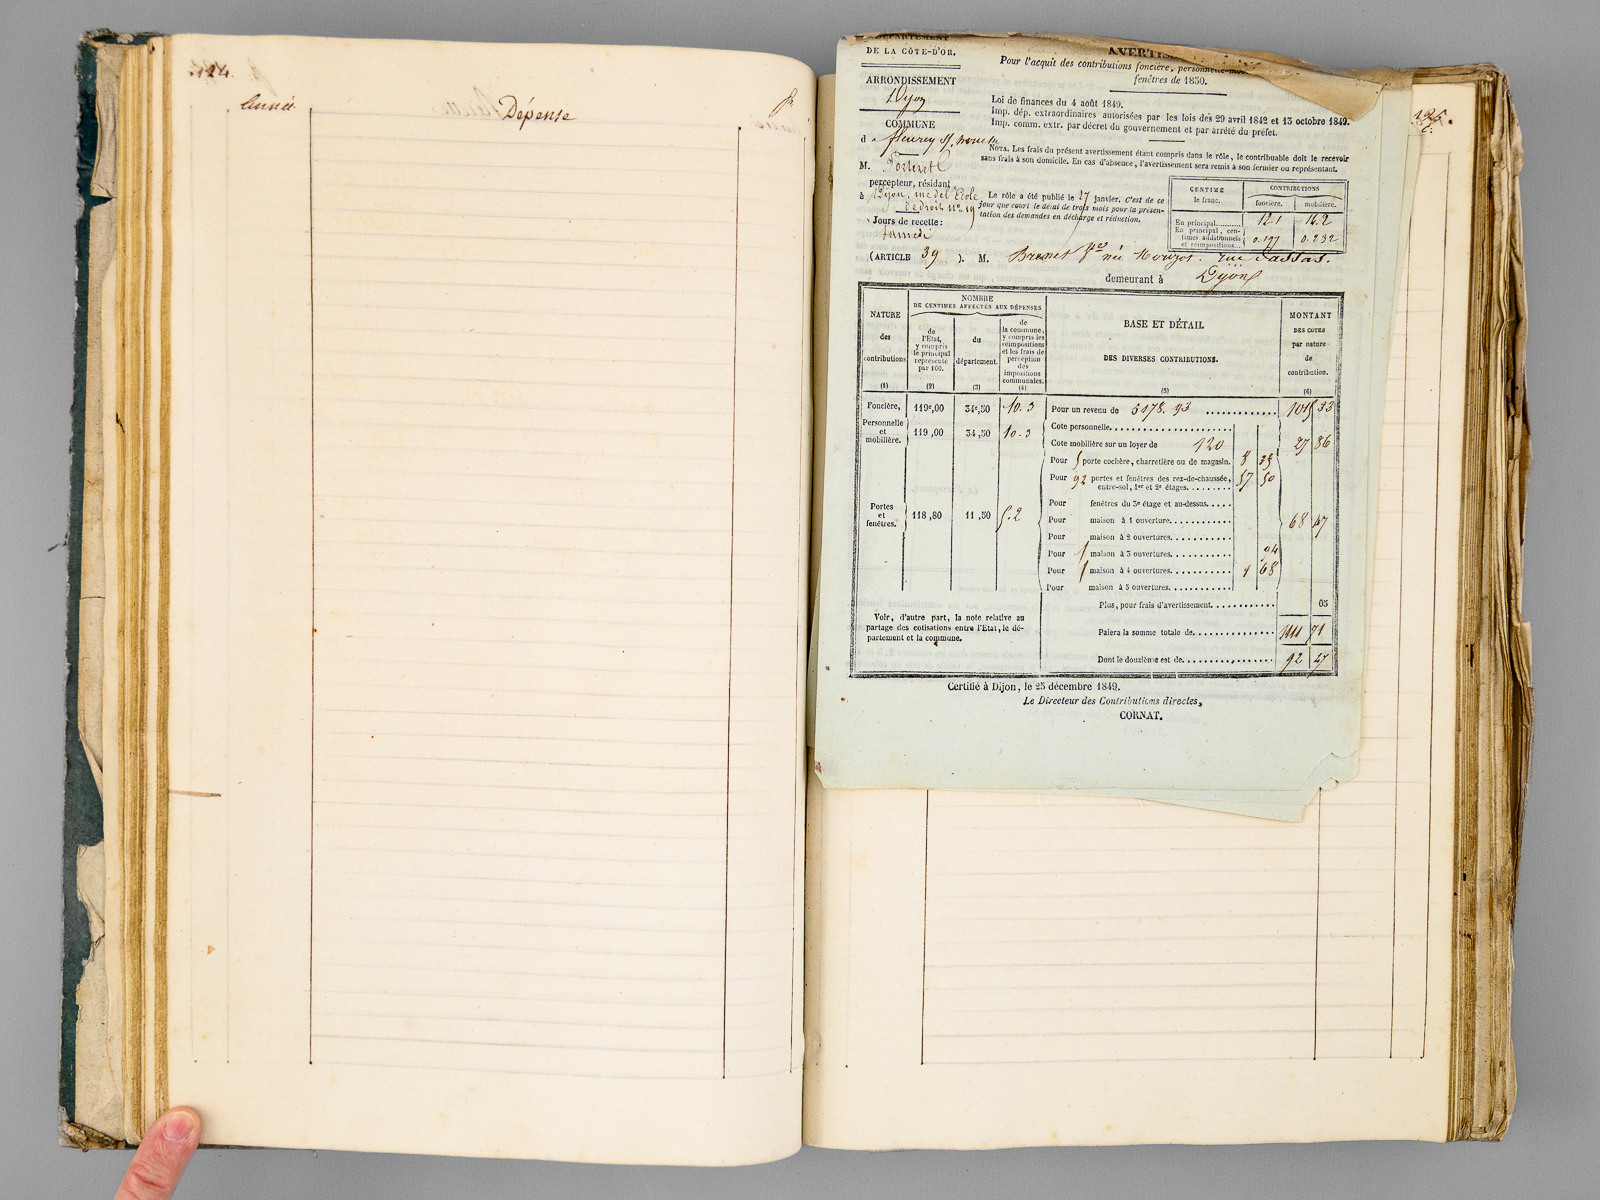 124.
Année
Dépense
125.
DÉPARTEMENT
DE LA CÔTE-D'OR.
ARRONDISSEMENT
Dijon
COMMUNE
de fleurey s/
M.
percepteur, résidant
à Dijon, rue de l'Ecole
de droit nº 19
Jours de recette:
Samedi
Pour l'acquit des contributions foncière,
fenêtres de 1850.
Loi de finances du 4 août 1849.
Imp. dép. extraordinaires autorisées par les lois des 29 avril 1842 et 13 octobre 1849.
Imp. comm. extr. par décret du gouvernement et par arrêté du préfet.
NOTA. Les frais du présent avertissement étant compris dans le rôle, le contribuable doit le recevoir
sans frais à son domicile. En cas d'absence, l'avertissement sera remis à son fermier ou représentant.
Le rôle a été publié le 27 janvier. C'est de ce
jour que court le délai de trois mois pour la présen-
tation des demandes en décharge et réduction.
CENTIME le franc. CONTRIBUTIONS
foncière. mobilière.
En principal 12.1 14.2
En principal, cen-
times additionnels
et réimpositions... 0.197 0.232
(ARTICLE 39 ). M. née rue Vassas.
demeurant à Dijon
NATURE des contributions (1)
NOMBRE
DE CENTIMES AFFECTÉS AUX DÉPENSES
de l'Etat, y compris le principal représenté par 100. (2)
du département. (3)
de la commune, y compris les réimpositions et les frais de perception des impositions communales. (4)
BASE ET DÉTAIL
DES DIVERSES CONTRIBUTIONS.
(5)
MONTANT DES COTES par nature de contribution. (6)
Foncière, 119ᶜ,00 34ᶜ,50 10.3 Pour un revenu de 5178.93 1015 33
Personnelle et mobilière. 119,00 34,50 10.3 Cote personnelle
Cote mobilière sur un loyer de 120 27 86
Pour 5 porte cochère, charretière ou de magasin. 8 35
Pour 92 portes et fenêtres des rez-de-chaussée,
entre-sol, 1er et 2e étages 57 50
Portes et fenêtres. 118,80 11,50 5.2
Pour fenêtres du 3e étage et au-dessus
Pour maison à 1 ouverture 68 47
Pour maison à 2 ouvertures
Pour 1 maison à 3 ouvertures 94
Pour 1 maison à 4 ouvertures 1 68
Pour maison à 5 ouvertures
Plus, pour frais d'avertissement 05
Voir, d'autre part, la note relative au
partage des cotisations entre l'Etat, le dé-
partement et la commune.
Paiera la somme totale de 1111 71
Dont le douzième est de 92 47
Certifié à Dijon, le 25 décembre 1849.
Le Directeur des Contributions directes,
CORNAT.